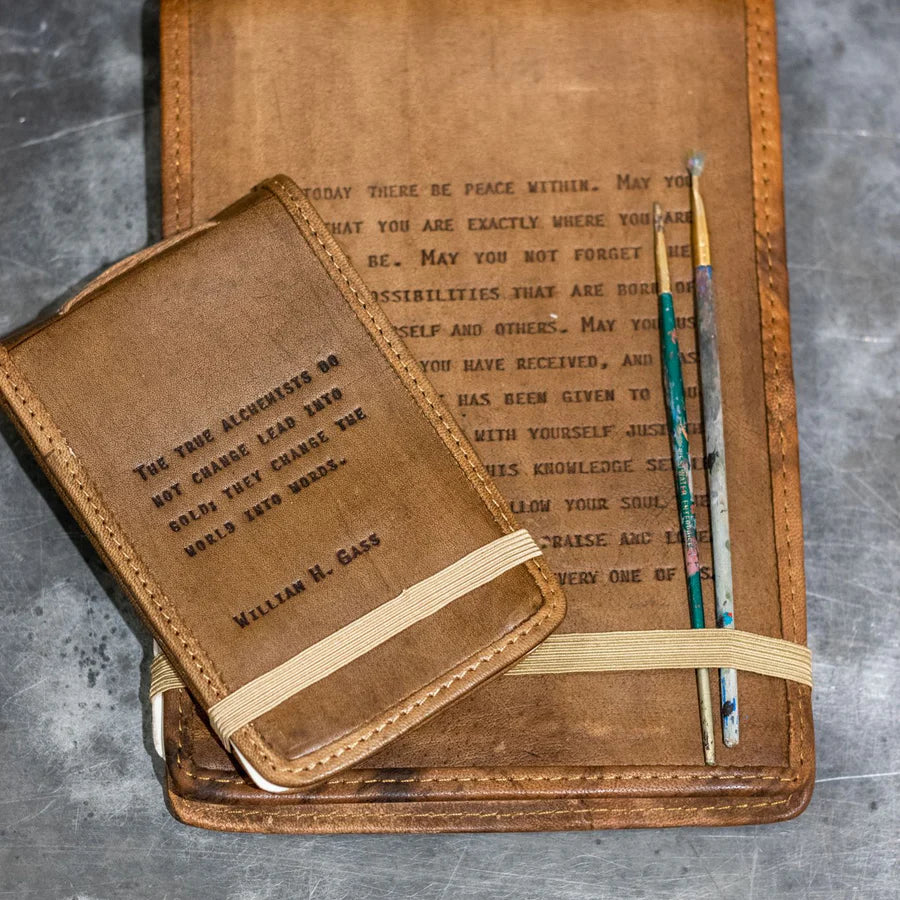 The true alchemists do
not change lead into
gold; they change the
world into words.
William H. Gass
today there be peace within. May you
that you are exactly where you are
be. May you not forget the
possibilities that are born of
and others. May you
you have received, and
has been given to
with yourself just
this knowledge
allow your soul the
praise and love
every one of us.